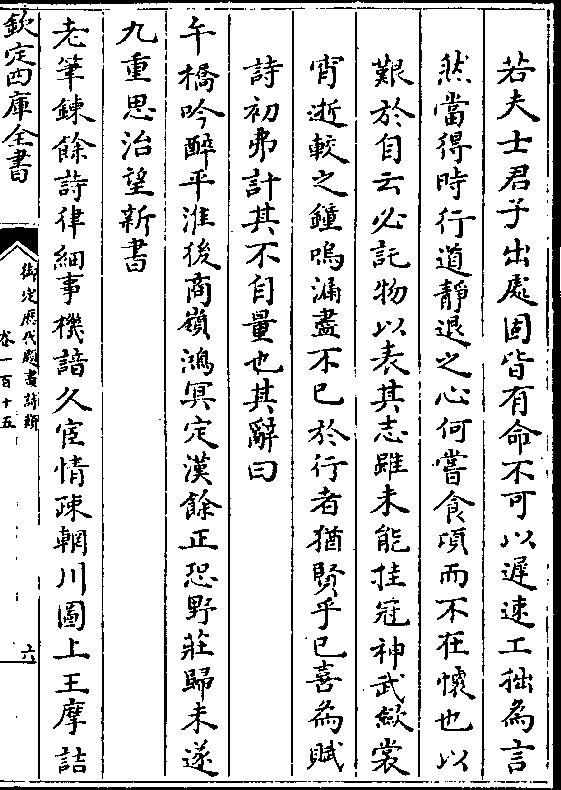 若夫士君子出處固皆有命不可以遲速工拙為言
然當得時行道靜退之心何嘗食頃而不在懷也以
艱於自云必託物以表其志雖未能挂冠神武歘裳
宵逝較之鐘鳴漏盡不已於行者猶賢乎已喜為賦
詩初弗計其不自量也其辭曰
午橋吟醉平淮後商嶺鴻冥定漢餘正恐野莊歸未遂
九重思治望新書
老筆鍊餘詩律細事機諳久宦情疎輞川圖上王摩詰
欽定四庫全書
御定歷代題畫詩類
卷一百十五
六